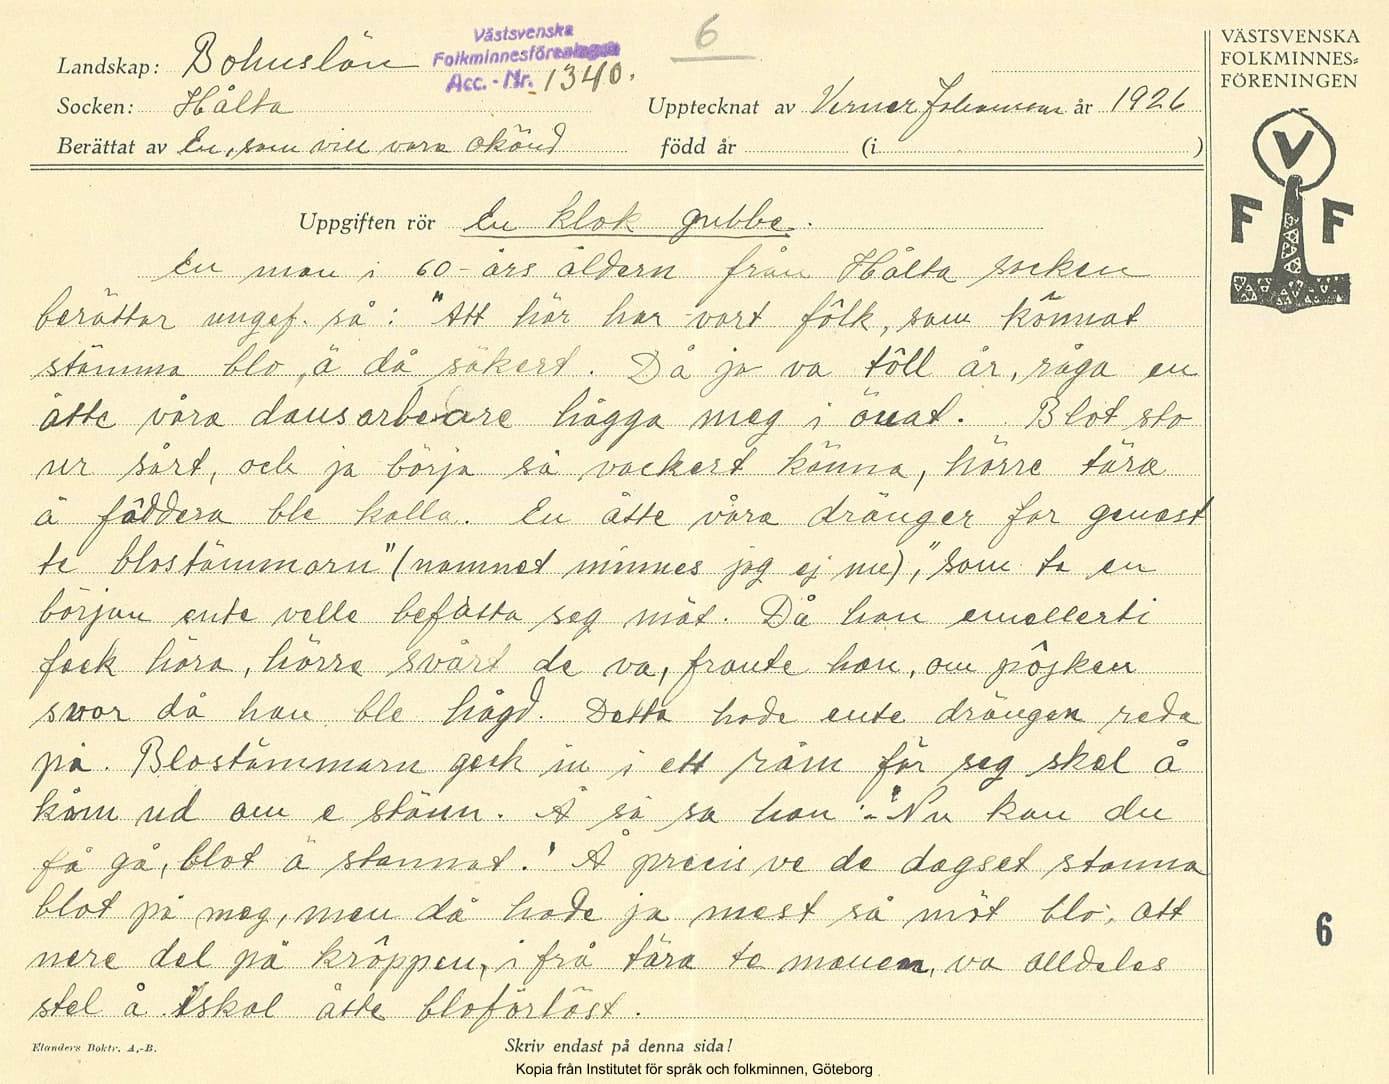 Landskap: Bohuslän
Västsvenska
Folkminnesföreningen
Acc. - Nr. 1340.
6
Socken: Hålta
Upptecknat av Verner Johansson år 1926
Berättat av En, som vill vara okänd född år (i )
VÄSTSVENSKA
FOLKMINNES-
FÖRENINGEN
V
F F
Uppgiften rör En klok gubbe.
En man i 60-års åldern från Hålta socken
berättar ungef. så: "Att här har vart fôlk, som kônnat
stämma blo, ä då säkert. Då ja va tôll år, råga en
åtte våra dausarbeare hågga meg i önat. Blot sto
ur sårt, och ja börja så vackert känna, hörre tära
å fåddera ble kalla. En åtte våra dränger for genast
te blostämmarn" (namnet minnes jag ej nu), "som te en
början ente velle befatta seg mät. Då han emellerti
feck höra, hörre svårt de va, fraute han, om pôjken
svor då han ble hågd. Detta hade ente drängen reda
på. Blostämmarn geck in i ett råm för seg skel å
kåm ud om e stänn. Å så sa han: "Nu kan du
få gå, blot ä stannat." Å precis ve de dagset stanna
blot på meg, men då hade ja mest så möt blo, att
nere del på krôppen, ifrå tära te mauen, va alldeles
stel å iskal åtte bloförlöst.
6
Elanders Boktr. A.-B.
Skriv endast på denna sida!
Kopia från Institutet för språk och folkminnen, Göteborg